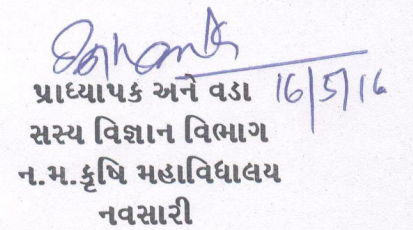 પ્રાધ્યાપક અને વડા 16/5/16
સસ્ય વિજ્ઞાન વિભાગ
ન.મ.કૃષિ મહાવિધાલય
નવસારી